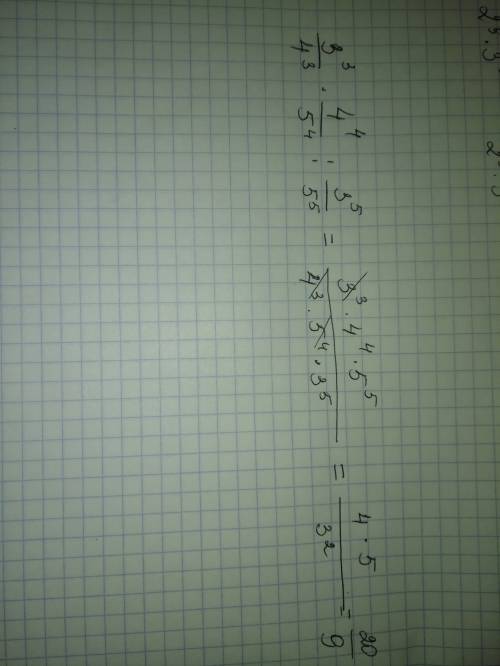 3³/4³ · 4⁴/5⁴ : 3⁵/5⁵ = 3³·4⁴·5⁵/4³·5⁴·3⁵ = 4·5/3² = 20/9